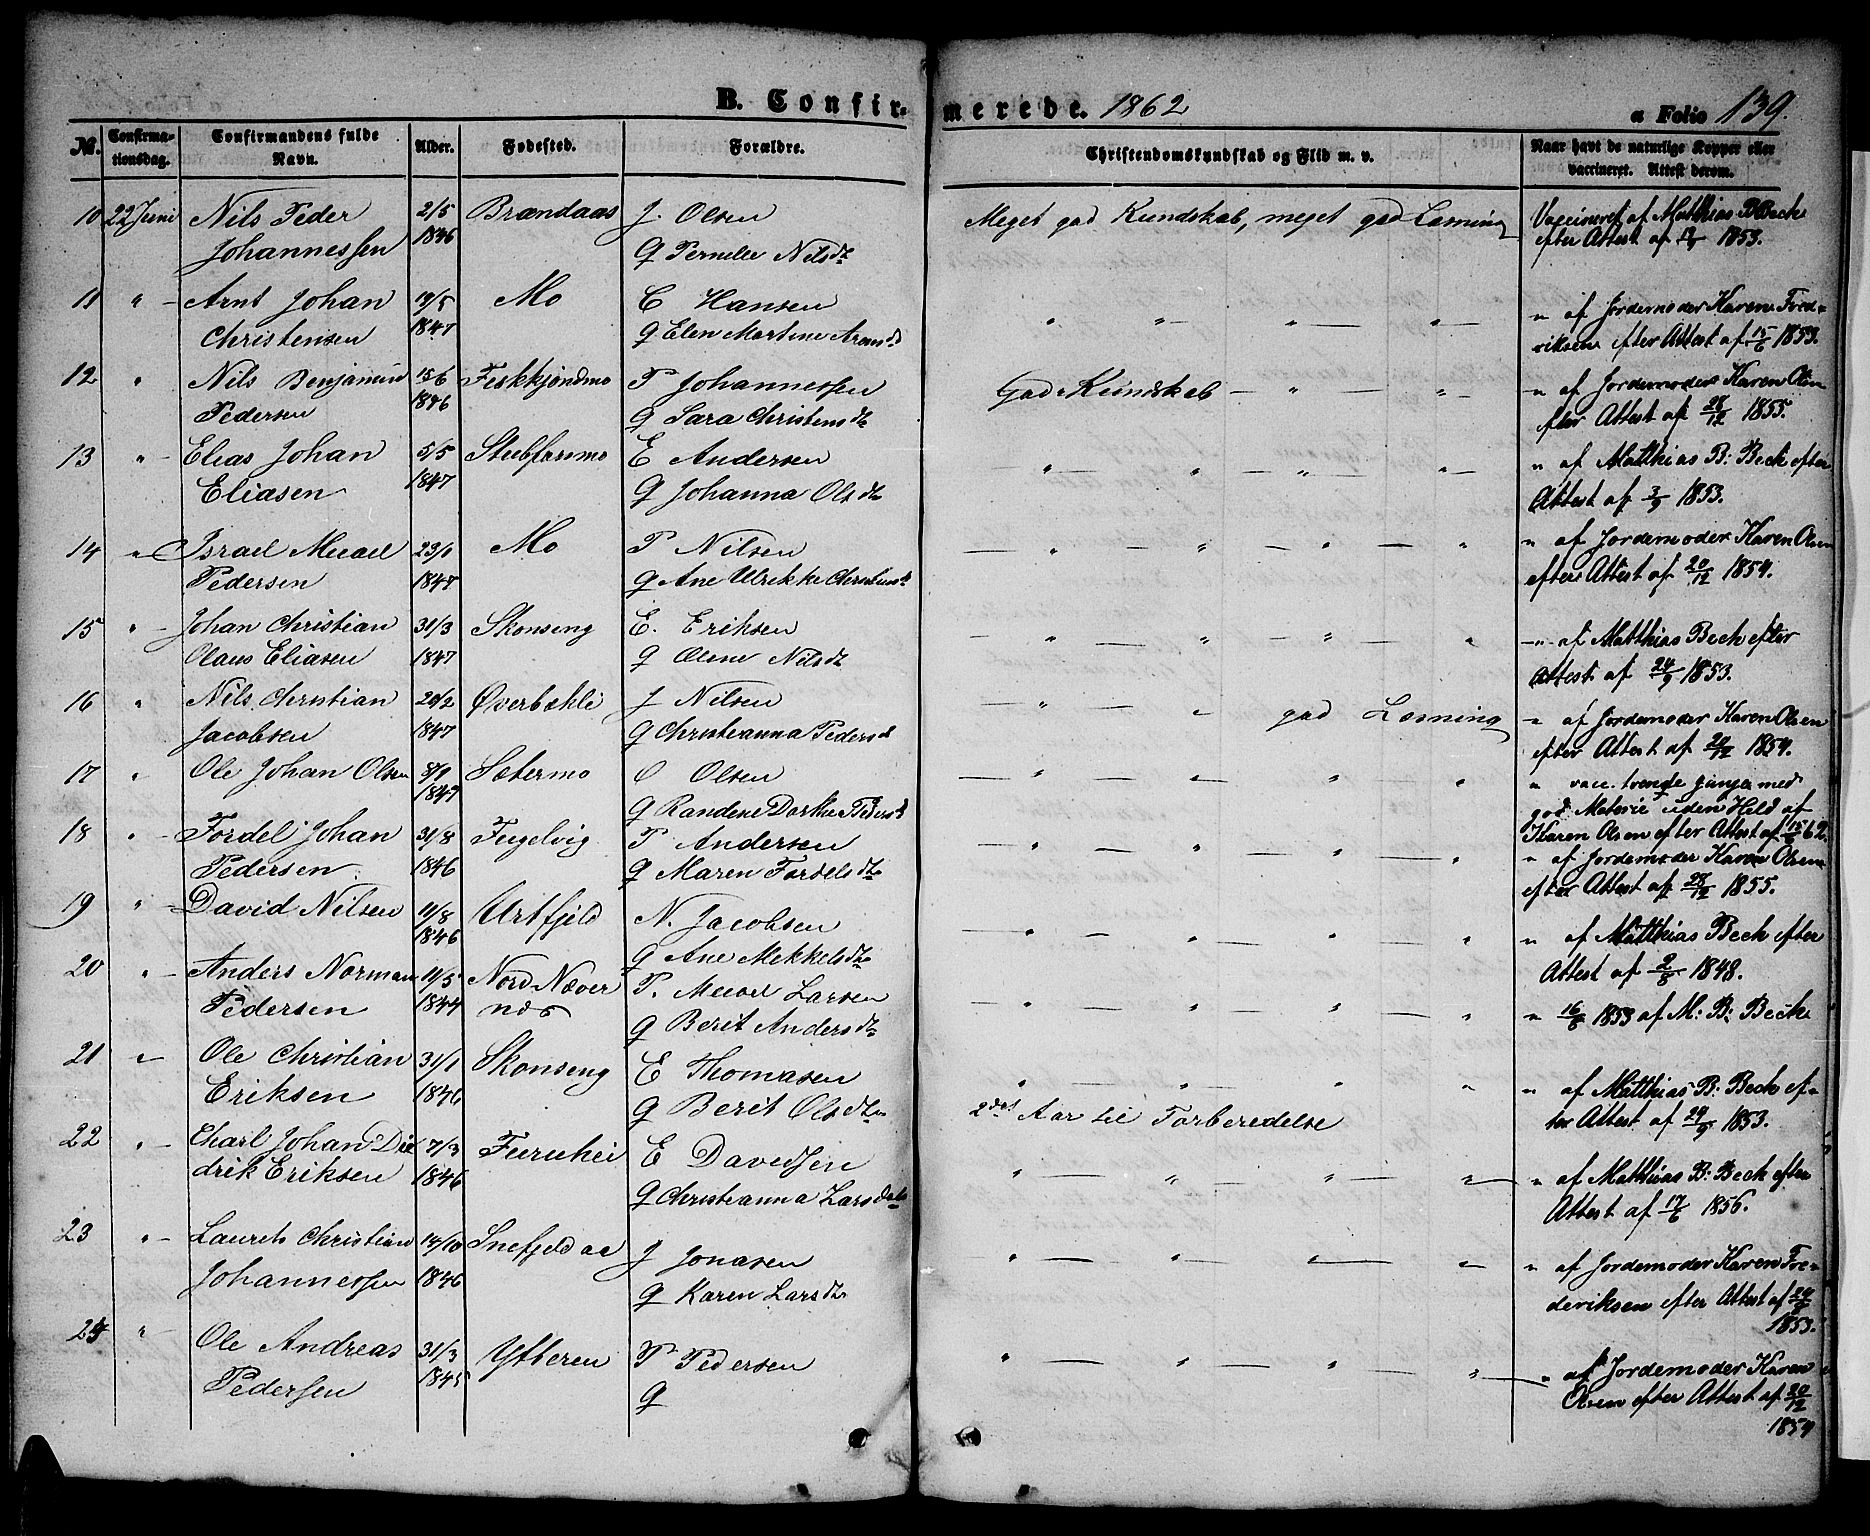 B. Confirmerede. 1862
a Folio 139.
No. Confirmationsdag. Confirmandens fulde Navn. Alder. Fødested. Forældre. Christendomskundskab og Flid m. v. Naar havt de naturlige Kopper eller vaccineret. Attest derom.
10 22 Juni Nils Peder 2/5 Brændaas J. Olsen Meget god Kundskab, meget god Læsning Vaccineret af Matthias B Beck
Johannessen 1846 g Pernelle Nilsdtr efter Attest af 1853.
11 " Arnt Johan 19/5 Mo C Hansen " " " " " af Jordemoder Karen Fred-
Christensen 1847 g Elen Martine Aronsd riksen efter Attest af 15/6 1853.
12 " Nils Benjamin 15/6 T Johannessen God Kundskab — " — " — " af Jordemoder Karen Olsen
Pedersen 1846 g Sara Christensdtr efter Attest af 28/12 1855.
13 " Elias Johan 5/5 E Andersen " — " — " " af Matthias B: Beck efter
Eliasen 1847 g Johanna Olsdtr Attest af 3/9 1853.
14 " Israel Micael 23/1 Mo P Nilsen — " — " — " — " " af Jordemoder Karen Olsen
Pedersen 1847 g Ane Ulrikke Christensd efter Attest af 20/12 1854.
15 " Johan Christian 31/3 Skonseng E. Eriksen — " — " — " — " — " af Matthias Beck efter
Olaus Eliasen 1847 g Olene Nilsdtr Attest af 24/9 1853.
16 " Nils Christian 20/2 Øverbækli J Nilsen — " — " god Læsning " af Jordemoder Karen Olsen
Jacobsen 1847 g Christianna Pedersd efter Attest af 20/12 1854.
17 " Ole Johan Olsen 8/9 Sætermo O Olsen — " — " — " — " " vacc. trende gange med
1847 g Randine Dorthea Pedersd god Materie uden Held af
18 " Fordel Johan 31/8 Fugelvig P Andersen — " — " — " — " Karen Olsen efter Attest af 15/6 62.
" af Jordemoder Karen Olsen
Pedersen 1846 g Maren Fordelsdtr efter Attest af 28/12 1855.
19 " David Nilsen 11/8 Urtfjeld N. Jacobsen — " — " — " — " " af Matthias Beck efter
1846 g Ane Mikkelsdtr Attest af 2/8 1848.
20 " Anders Norman 11/5 Nord Næver P. Micael Larsen — " — " — " — " " 16/6 1853 af M: B: Beck
Pedersen 1844 næs g Berit Andersdtr
21 " Ole Christian 31/1 Skonseng E Thomasen " — " — " " af Matthias B: Beck ef-
Eriksen 1846 g Berit Olsdtr 2det Aar til Forberedelse ter Attest af 24/9 1853.
22 " Charl Johan Die 7/3 Furuhei E Davidsen " — " — " — " " af Matthias B: Beck efter
drik Eriksen 1846 g Christianna Larsdatr Attest af 17/6 1856.
23 " Laurits Christian 14/10 Snefjeld aa J Jonasen " — " — " — " " af Jordemoder Karen Fre-
Johannessen 1846 g Karen Larsdtr deriksen efter Attest af 1853.
24 " Ole Andreas 31/3 Ytteren P Pedersen " — " — " — " " af Jordemoder Karen
Pedersen 1845 g Olsen efter Attest af 20/12
1854